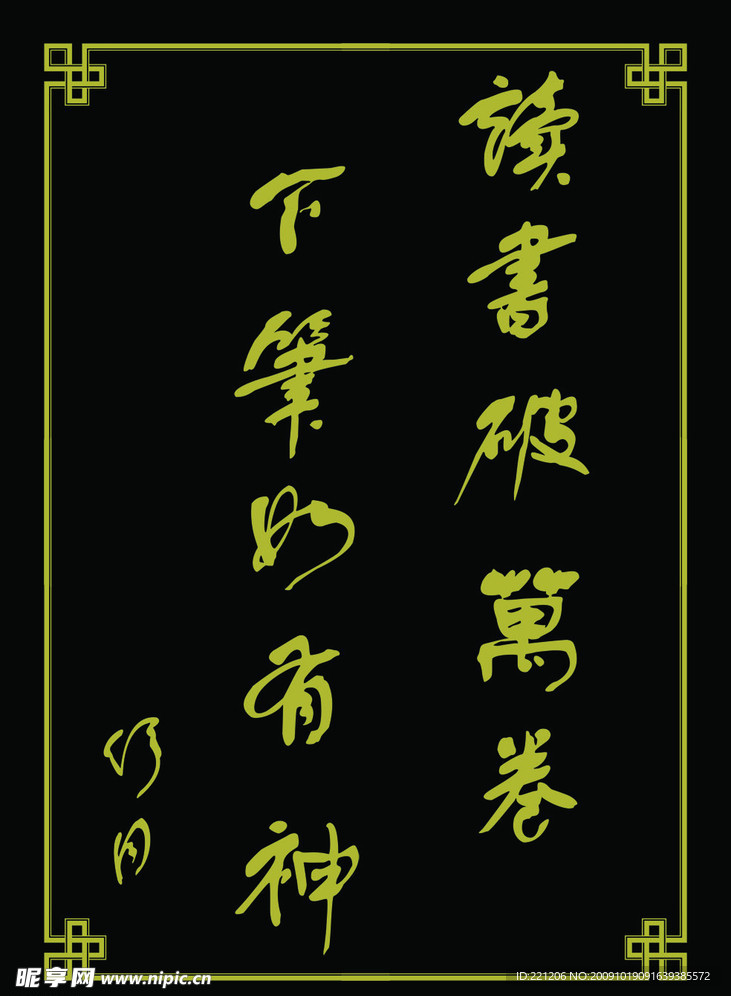 讀書破萬卷
下筆如有神
昵享网 www.nipic.cn
ID:221206 NO:20091019091639385572